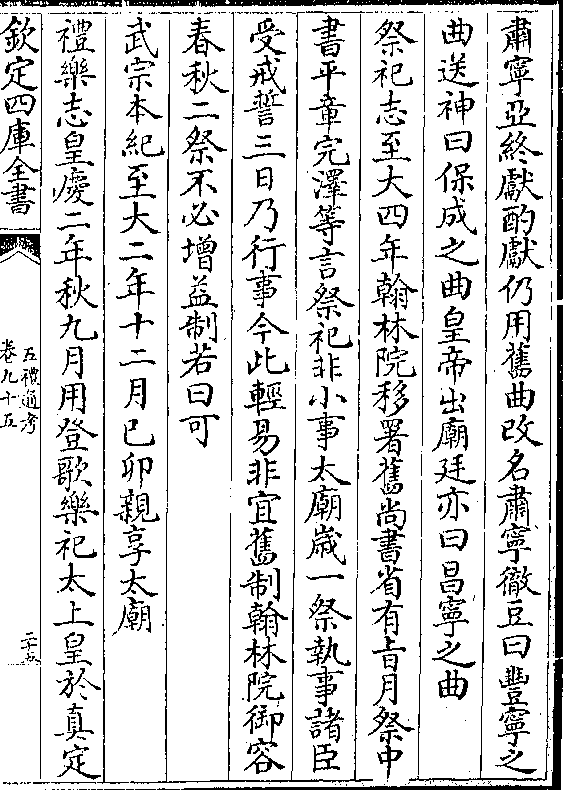 肅寧亞終獻酌獻仍用舊曲改名肅寧徹豆曰豐寧之
曲送神曰保成之曲皇帝出廟廷亦曰昌寧之曲
祭祀志至大四年翰林院移署舊尚書省有㫖月祭中
書平章完澤等言祭祀非小事太廟歲一祭執事諸臣
受戒誓三日乃行事今此輕易非宜舊制翰林院御容
春秋二祭不必增益制若曰可
武宗本紀至大二年十二月己卯親享太廟
禮樂志皇慶二年秋九月用登歌樂祀太上皇於真定
欽定四庫全書
五禮通考
卷九十五
二十五